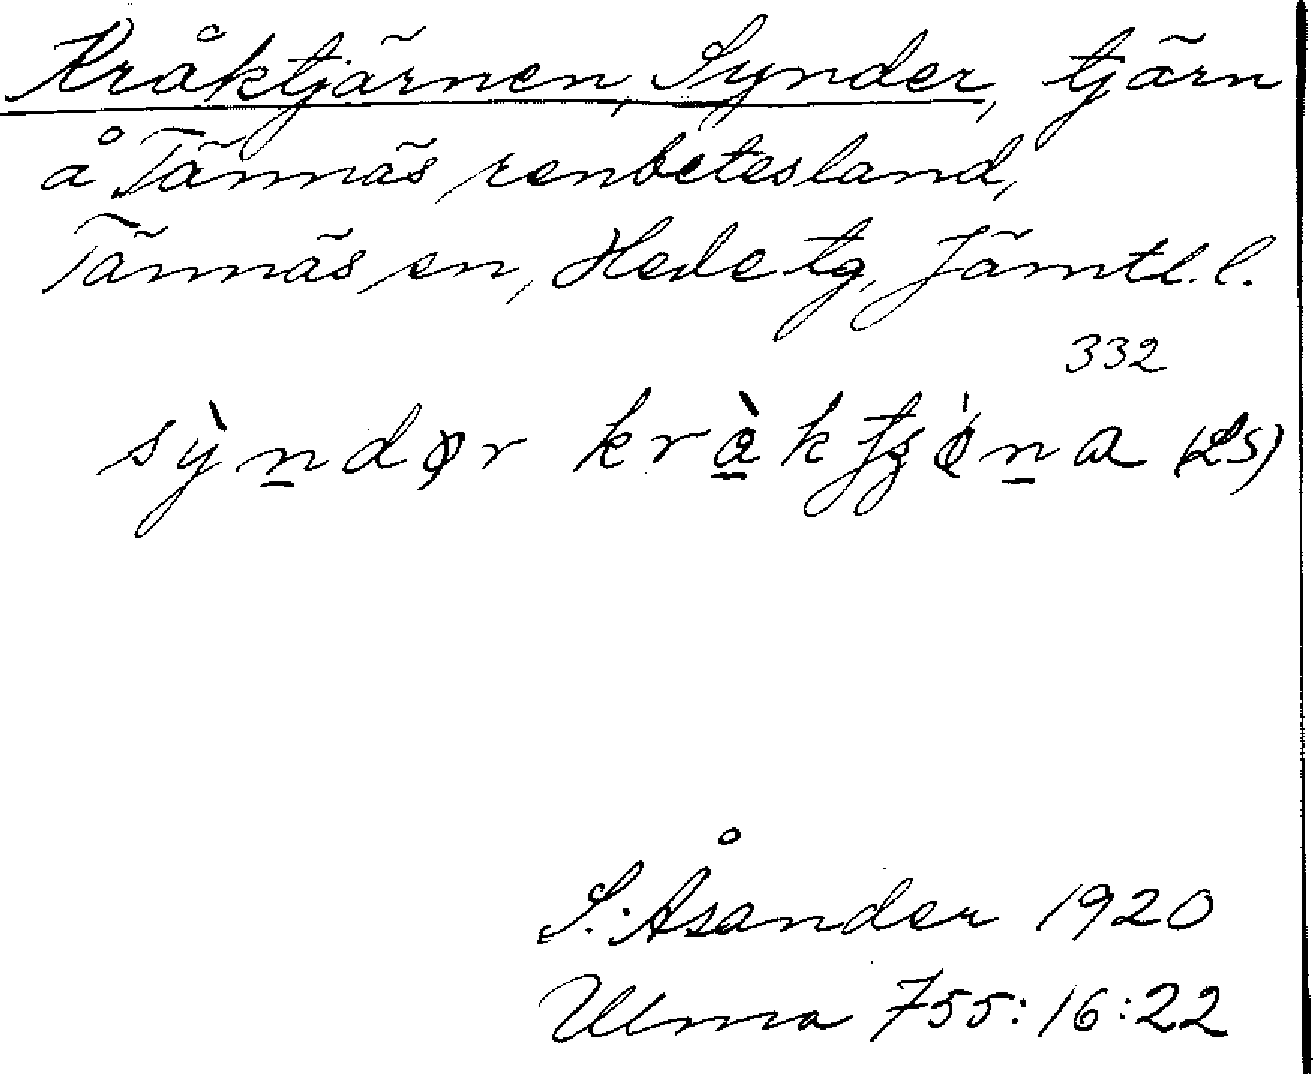 Kråktjärnen, Synder, tjärn
å Tännäs renbetesland,
Tännäs sn, Hede tg, Jämtl. l.
332
sỳn̲dər krà̲ktʃən̲a (LS)
S. Åsander 1920
Ulma 755:16:22